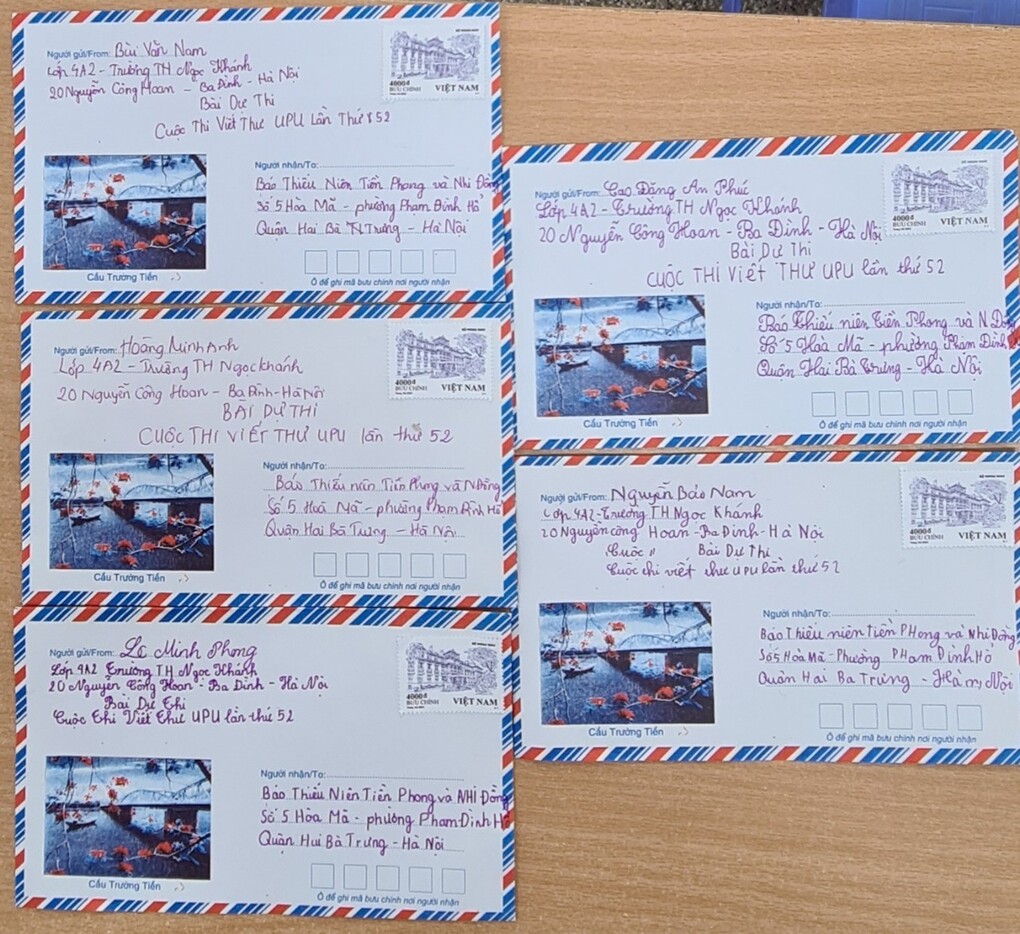 Người gửi/From: Bùi Văn Nam
Lớp 4A2 - Trường TH Ngọc Khánh
20 Nguyễn Công Hoan - Ba Đình - Hà Nội
Bài Dự Thi
Cuộc Thi Viết Thư UPU Lần Thứ 52
4000đ
BƯU CHÍNH
VIỆT NAM
Người nhận/To:
Báo Thiếu Niên Tiền Phong và Nhi Đồng
Số 5 Hòa Mã - phường Phạm Đình Hổ
Quận Hai Bà Trưng - Hà Nội
Cầu Trường Tiền
Ô để ghi mã bưu chính nơi người nhận
Người gửi/From: Hoàng Minh Anh
Lớp 4A2 - Trường TH Ngọc Khánh
20 Nguyễn Công Hoan - Ba Đình - Hà Nội
BÀI DỰ THI
CUỘC THI VIẾT THƯ UPU lần thứ 52
4000đ
BƯU CHÍNH
VIỆT NAM
Người nhận/To:
Báo Thiếu niên Tiền Phong và N Đồng
Số 5 Hoà Mã - phường Phạm Đình Hổ
Quận Hai Bà Trưng - Hà Nội
Cầu Trường Tiền
Ô để ghi mã bưu chính nơi người nhận
Người gửi/From: Lê Minh Phong
Lớp 4A2 Trường TH Ngọc Khánh
20 Nguyễn Công Hoan - Ba Đình - Hà Nội
Bài Dự Thi
Cuộc Thi Viết Thư UPU lần thứ 52
4000đ
BƯU CHÍNH
VIỆT NAM
Người nhận/To:
Báo Thiếu Niên Tiền Phong và NHI Đồng
Số 5 Hòa Mã - phường Phạm Đình Hổ
Quận Hai Bà Trưng - Hà Nội
Cầu Trường Tiền
Ô để ghi mã bưu chính nơi người nhận
Người gửi/From: Cao Đặng An Phúc
Lớp 4A2 - Trường TH Ngọc Khánh
20 Nguyễn Công Hoan - Ba Đình - Hà Nội
Bài Dự Thi
CUỘC THI VIẾT THƯ UPU lần thứ 52
4000đ
BƯU CHÍNH
VIỆT NAM
Người nhận/To:
Báo Thiếu niên Tiền Phong và N Đồng
Số 5 Hoà Mã - phường Phạm Đình
Quận Hai Bà Trưng - Hà Nội
Cầu Trường Tiền
Ô để ghi mã bưu chính nơi người nhận
Người gửi/From: Nguyễn Bảo Nam
Lớp 4A2 - Trường TH Ngọc Khánh
20 Nguyễn công Hoan - Ba Đình - Hà Nội
Cuộc Bài Dự Thi
Cuộc thi viết thư UPU lần thứ 52
4000đ
BƯU CHÍNH
VIỆT NAM
Người nhận/To:
Báo Thiếu niên Tiền PHong và Nhi Đồng
Số 5 Hoà Mã - Phường PHạm Đình Hổ
Quận Hai Ba Trưng - Hà Nội
Cầu Trường Tiền
Ô để ghi mã bưu chính nơi người nhận